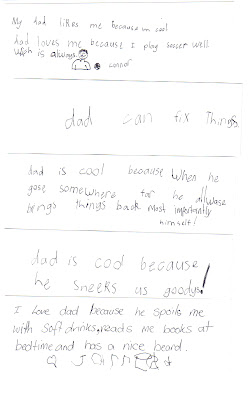 My dad likes me because im cool
dad loves me because I play socser well
wich is always.
connor
dad can fix Things
dad is cool because when he
gose somewhere far he allwase
bengs things back most importantly
himself!
dad is cool because
he sneeks us goodys!
I love dad because he spoils me
with soft drinks, reads me books at
bedtime and has a nice beard.